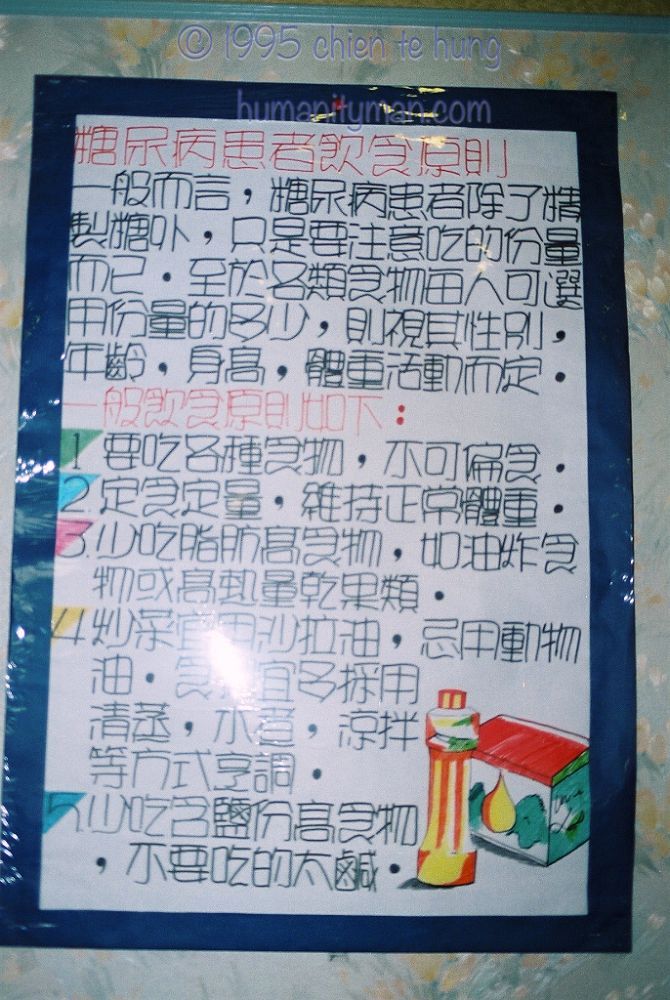 © 1995 chien te hung
humanityman.com
糖尿病患者飲食原則
一般而言，糖尿病患者除了精
製糖外，只是要注意吃的份量
而已．至於各類食物每人可選
用份量的多少，則視其性別，
年齡，身高，體重活動而定．
一般飲食原則如下：
1 要吃各種食物，不可偏食．
2. 定食定量，維持正常體重．
3. 少吃脂肪高食物，如油炸食
物或高熱量乾果類．
4 炒菜宜用沙拉油，忌用動物
油．食 宜多採用
清蒸，水煮，涼拌
等方式烹調．
5. 少吃含鹽份高食物
，不要吃的太鹹．